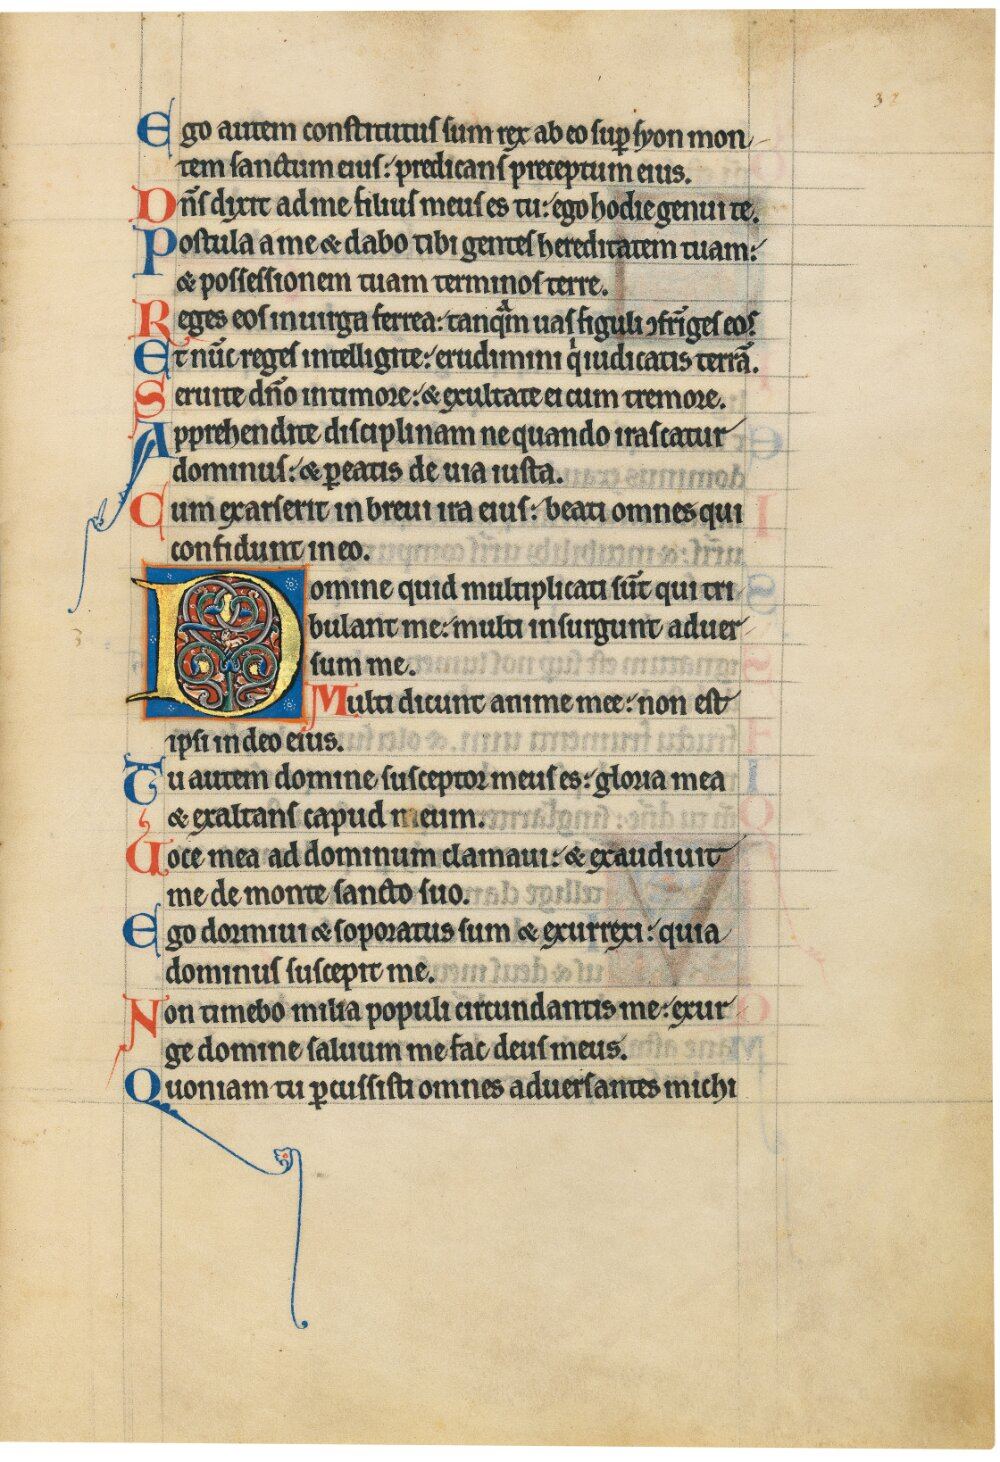 32
Ego autem constitutus sum rex ab eo sup̲ syon mon
tem sanctum eius: predicans preceptum eius.
Dn̄s dixit ad me filius meus es tu: ego hodie genui te.
Postula a me & dabo tibi gentes hereditatem tuam:
& possessionem tuam terminos terre.
Reges eos in uirga ferrea: tanqͣm uas figuli ↄfrīges eos.
Et nūc reges intelligite: erudimini qͥ iudicatis terrā.
Seruite dn̄o in timore: & exultate ei cum tremore.
Apprehendite disciplinam ne quando irascatur
dominus: & ꝑeatis de uia iusta.
Cum exarserit in breui ira eius: beati omnes qui
confidunt in eo.
Domine quid multiplicati sūt qui tri
bulant me: multi insurgunt aduer
sum me.
Multi dicunt anime mee: non est
ipsi in deo eius.
3
Tu autem domine susceptor meus es: gloria mea
& exaltans capud meum.
Uoce mea ad dominum clamaui: & exaudiuit
me de monte sancto suo.
Ego dormiui & soporatus sum & exurrexi: quia
dominus suscepit me.
Non timebo milia populi circundantis me: exur
ge domine saluum me fac deus meus.
Quoniam tu ꝑcussisti omnes aduersantes michi